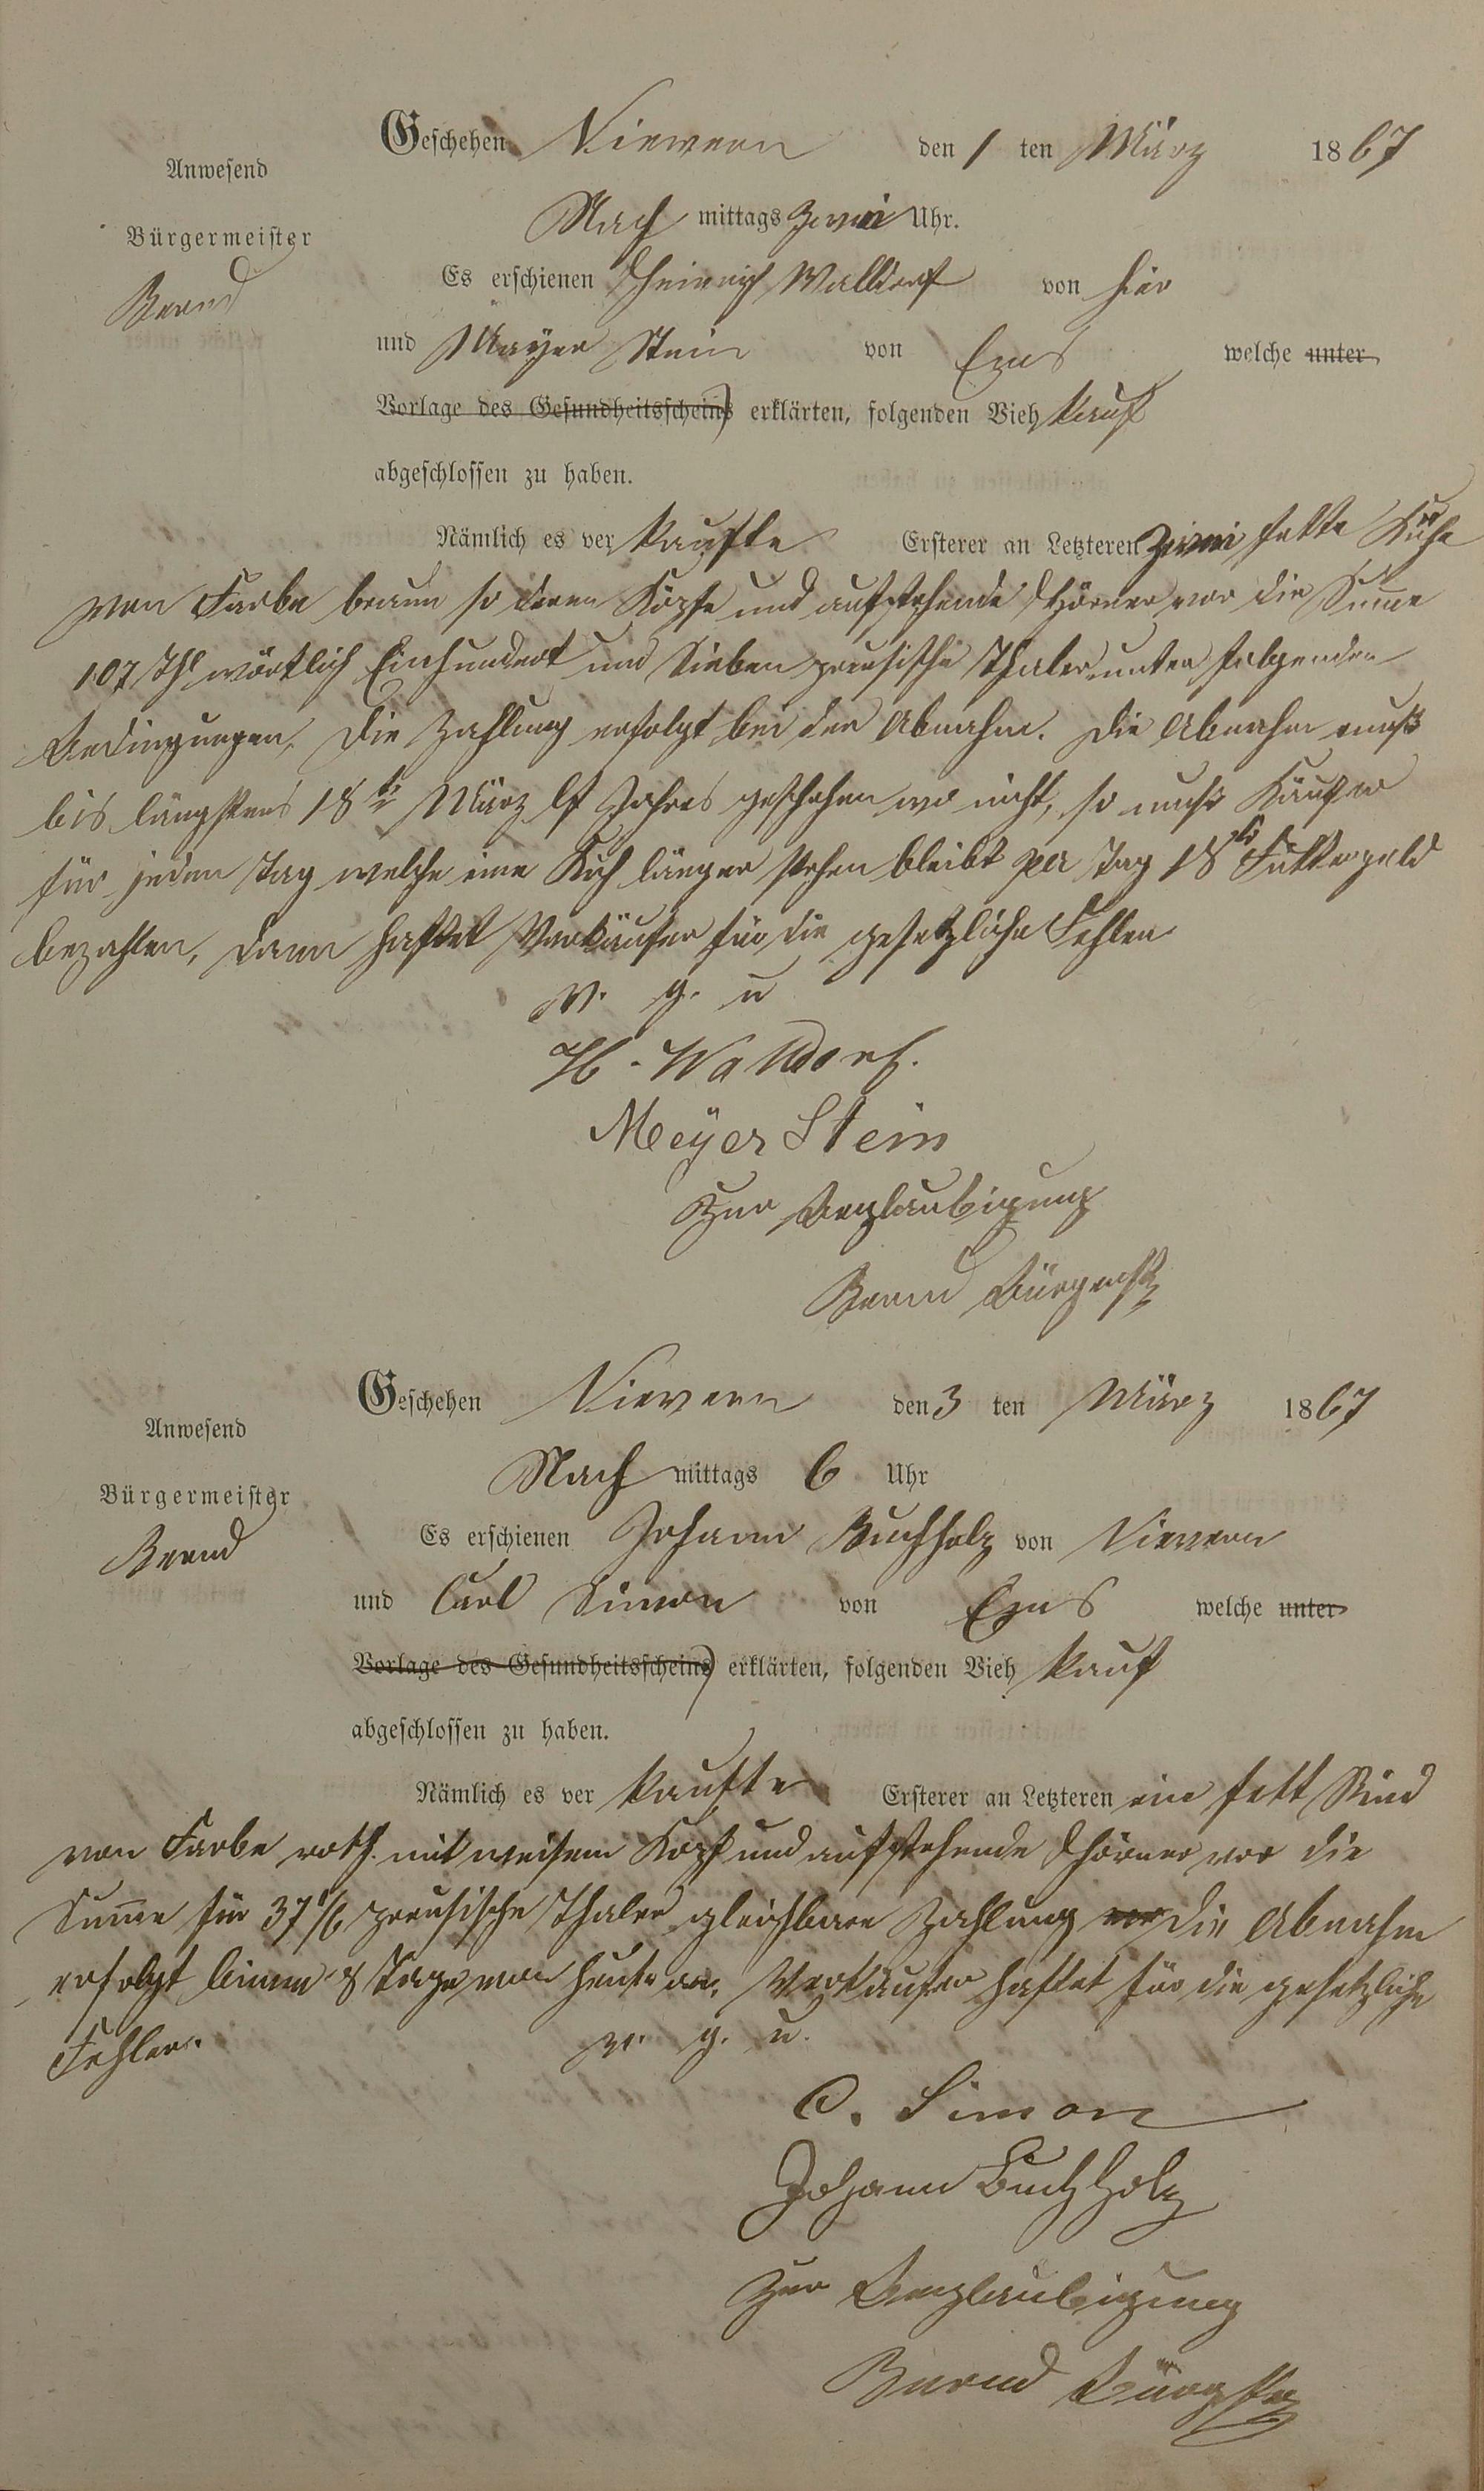 Geschehen Nievern den 1 ten März 1867
Anwesend
Nach mittags Zwei Uhr.
Bürgermeister
Bernd
Es erschienen Heinrich Walldorf von hier
und Mayer Stein von Ems welche unter
Vorlage des Gesundheitsscheins erklärten, folgenden Vieh kauf
abgeschlossen zu haben.
Nämlich es ver kaufte Ersterer an Letzteren Zwei fette Kühe
von Farbe braun so deren Köpfe und aufstehende Hörner vor die Summe
107 Thl wörtlich Einhundert und Sieben preusische Thaler unter folgenden
Bedingungen, Die Zahlung erfolgt bei der Abnahm. Die Abnahm muß
bis längstens 18te März lf Jahres geschehen wo nicht, so muß Käufer
für jeden Tag welche eine Kuh länger stehen bleibt per Tag 18 Futtergeld
bezahlen, dann haftet Verkäufer für die gesetzliche Fehler
v. g. u
H. Walldorf.
Meyer Stein
Zur Beglaubigung
Bernd Bürgermstr
Geschehen Nievern den 3 ten März 1867
Anwesend
Nach mittags 6 Uhr
Bürgermeister
Bernd
Es erschienen Johann Buchholz von Nievern
und Carl Simon von Ems welche unter
Vorlage des Gesundheitsscheins erklärten, folgenden Vieh kauf
abgeschlossen zu haben.
Nämlich es ver kaufte Ersterer an Letzteren ein fett Rind
von Farbe roth mit weisem Kopf und aufstehende Hörner vor die
Summe für 37 1/6 preusische Thaler gleichbare Zahlung vor die Abnahm
erfolgt binnen 8 Tage von heute an, Verkäufer haftet für die gesetzliche
Fehler.
v. g. u.
C. Simon
Johann Buchholz
Zur Beglaubigung
Bernd Bürgmstr